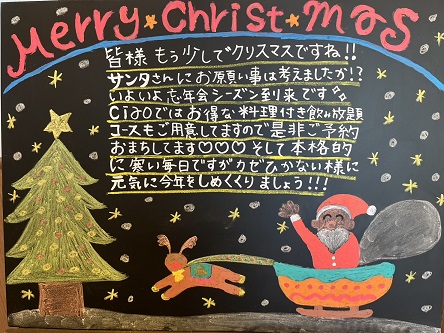 Merry★Christ★mas
皆様 もう少しでクリスマスですね!!
サンタさんにお願い事は考えましたか!?
いよいよ忘年会シーズン到来です。
Ciaoではお得な料理付き飲み放題
コースもご用意してますので是非ご予約
おまちしてます♡♡♡そして本格的
に寒い毎日ですがカゼひかない様に
元気に今年をしめくくりましょう!!!